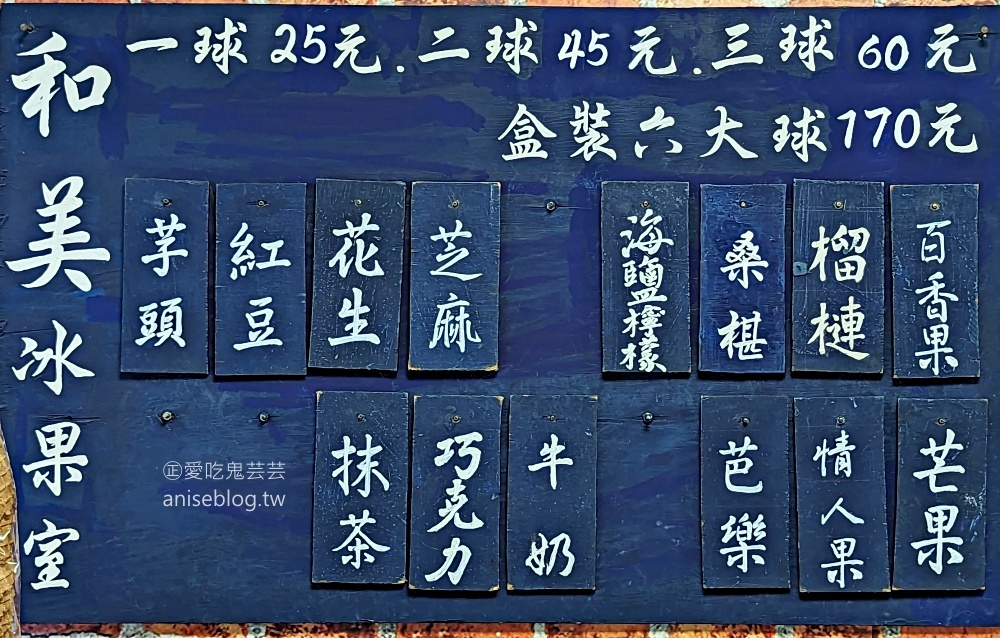 和美冰果室
一球25元.二球45元.三球60元
盒裝六大球170元
芋頭
紅豆
花生
芝麻
海鹽檸檬
桑椹
榴槤
百香果
抹茶
巧克力
牛奶
芭樂
情人果
芒果
㊣愛吃鬼芸芸
aniseblog.tw